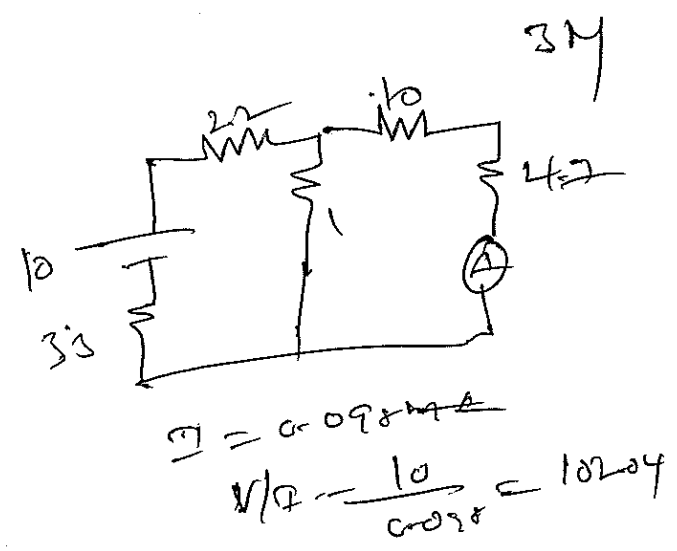 3M
10
2.2
4.7
1
A
10
3.3
I = 0.098 mA
V/I = 10 / 0.098 = 102.04